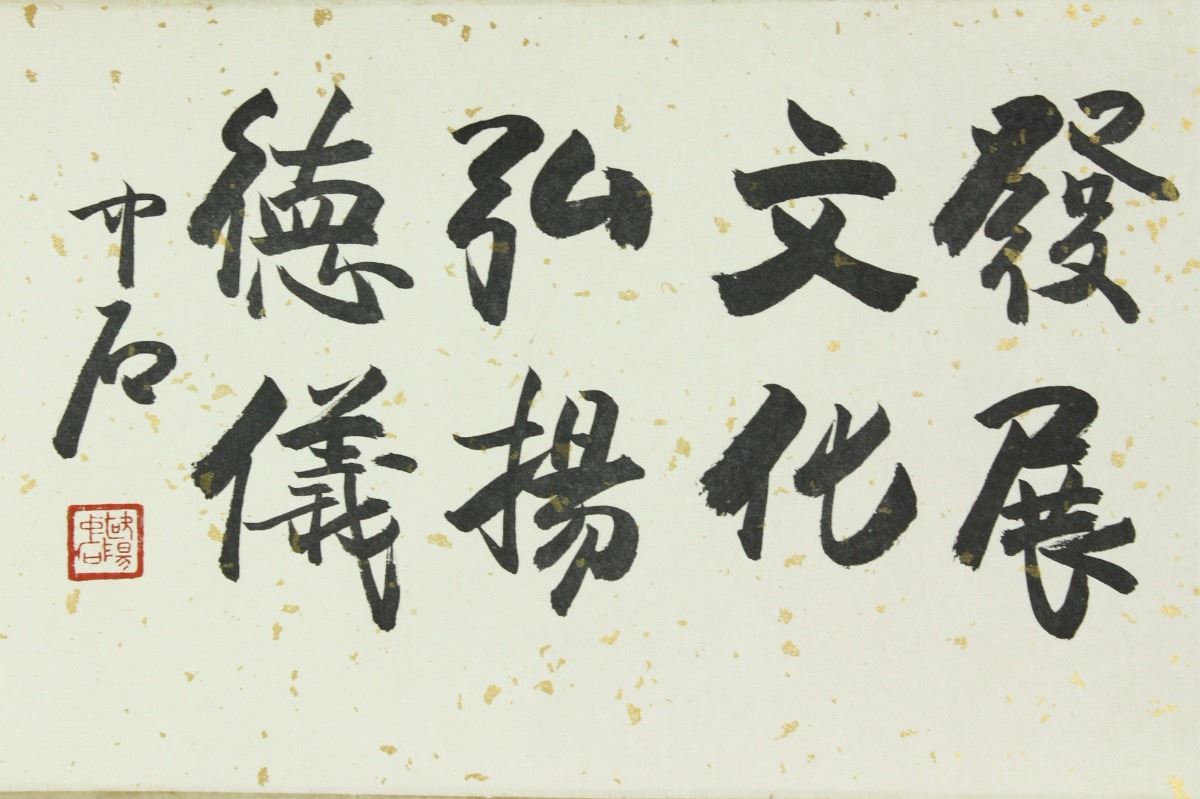 發展
文化
弘揚
德儀
中石
歐陽
中石